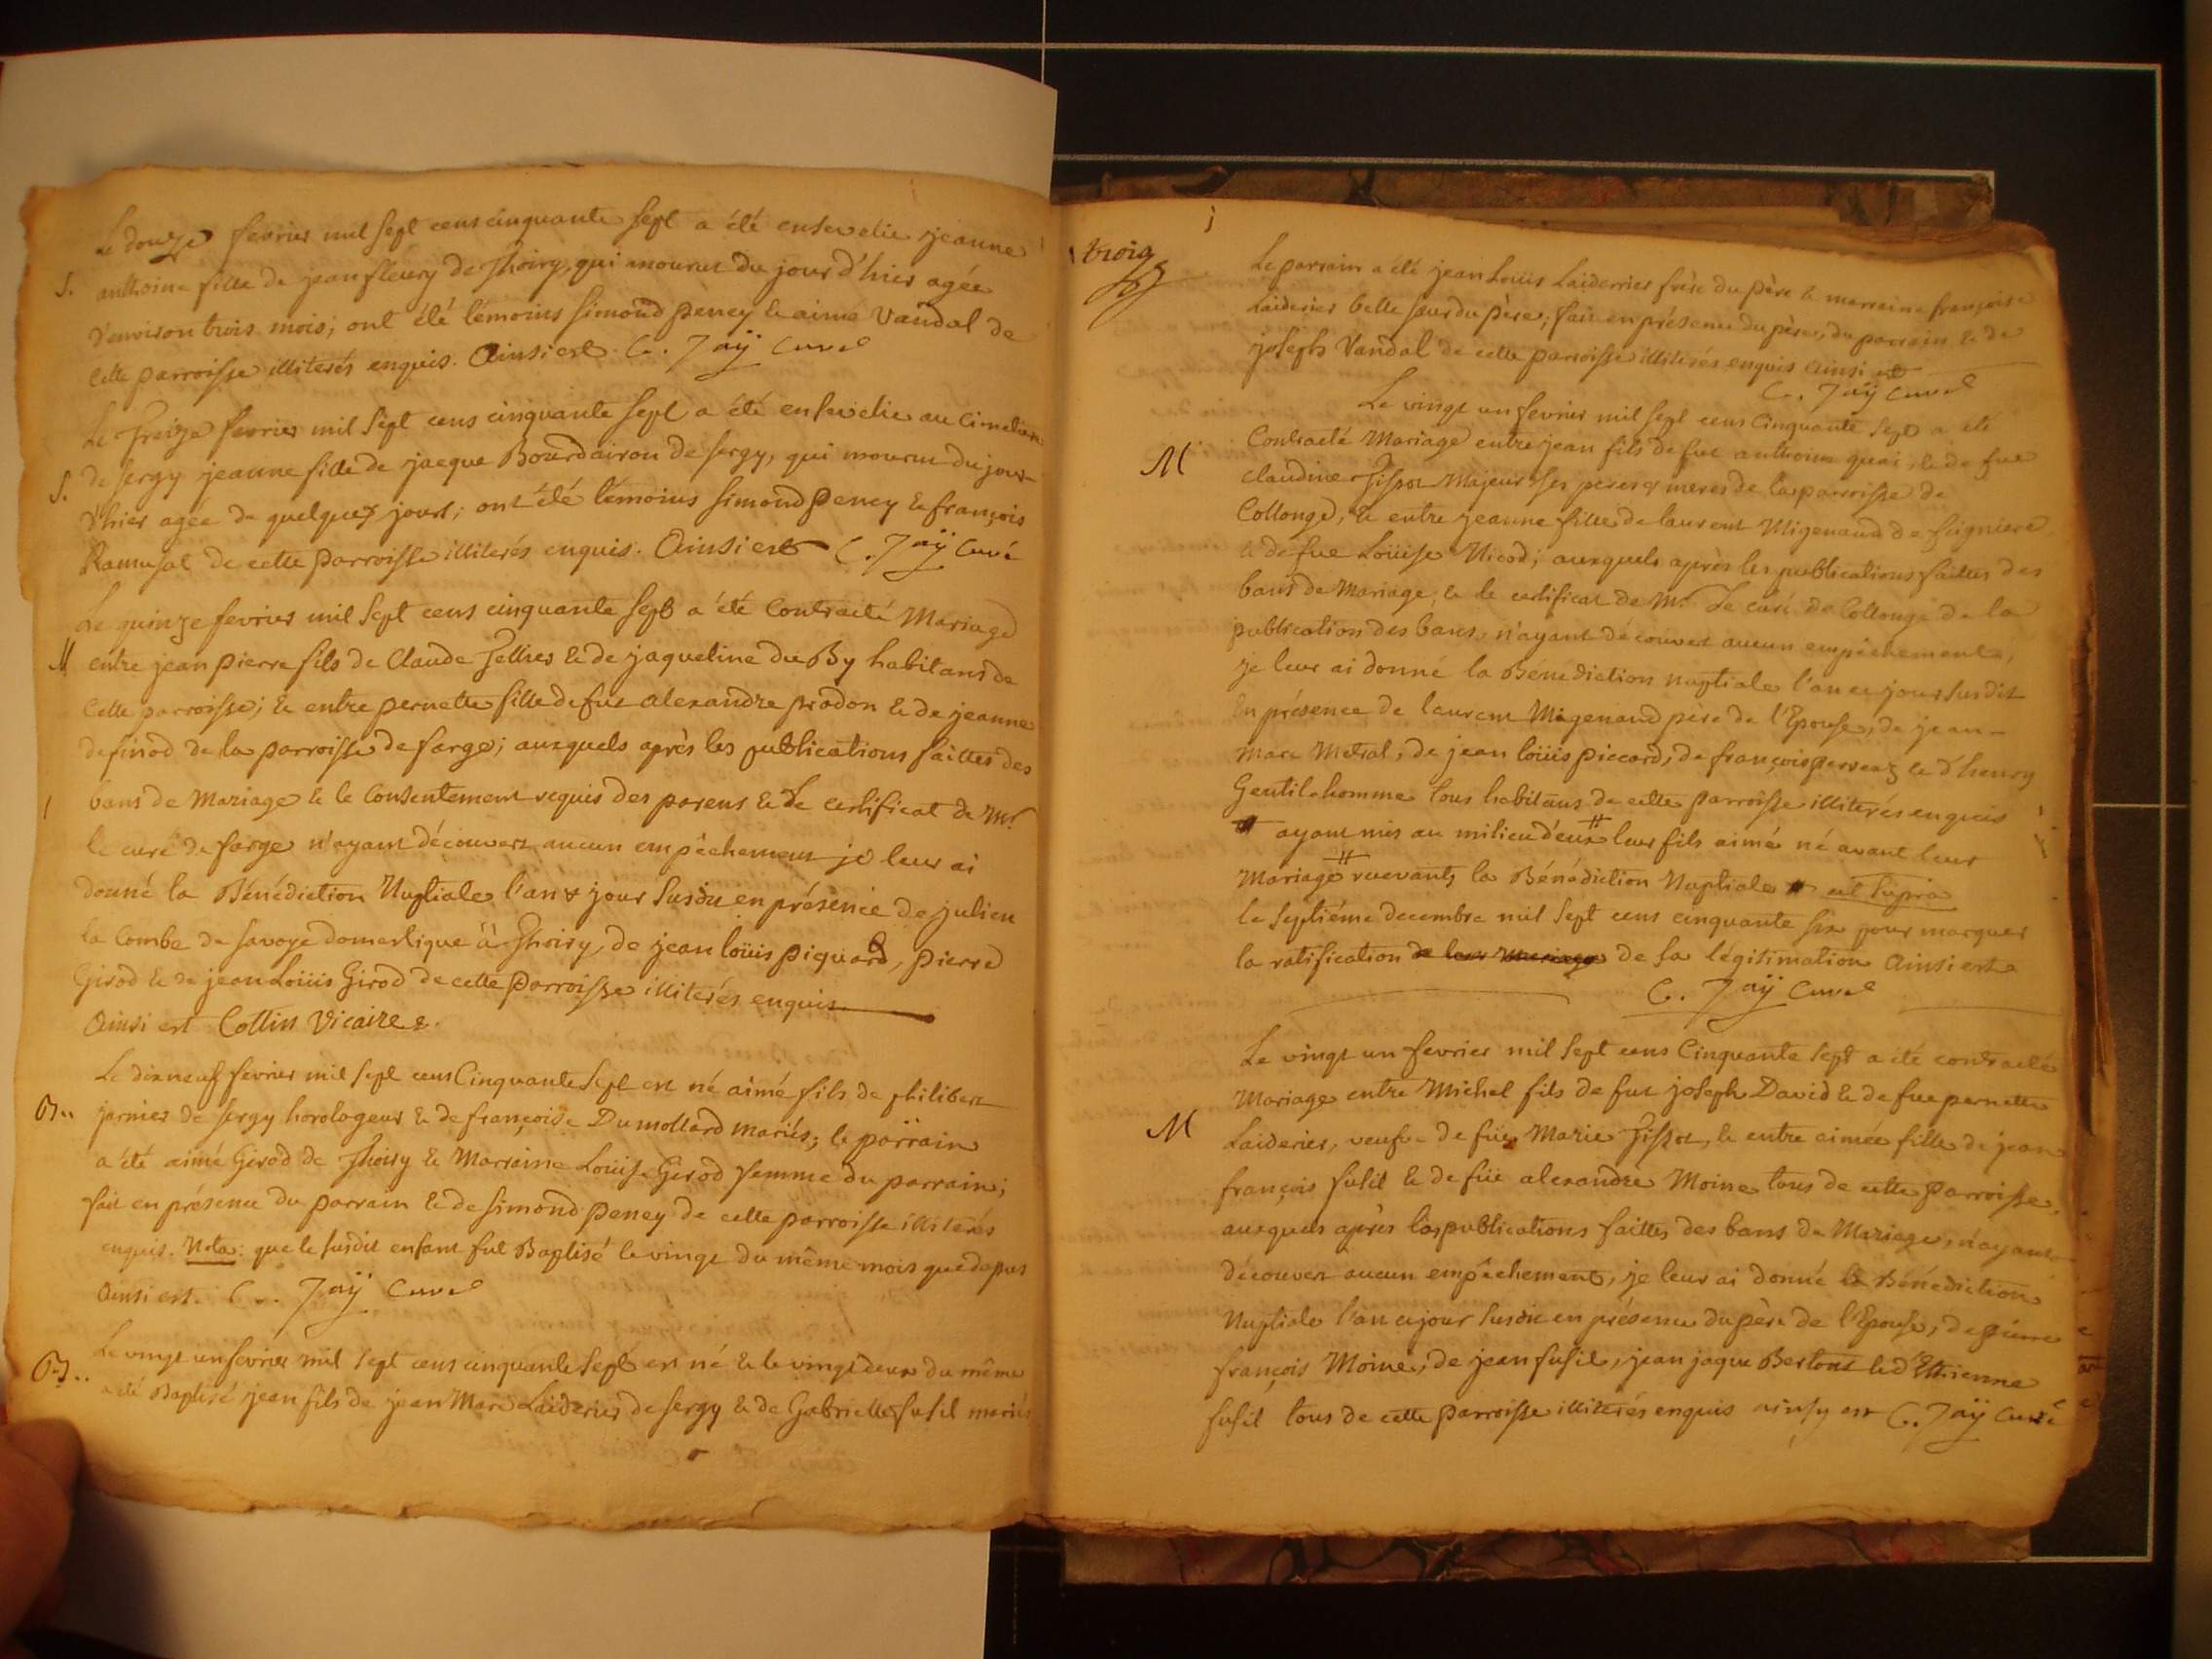 Le douze fevrier mil sept cens cinquante sept a été ensevelie jeanne
S. anthoine fille de jean fleury de Thoiry, qui mourut du jour d'hier agée
d'environ trois mois; ont été témoins simond peney & aimé Vandal de
cette parroisse illiterés enquis. Ainsi est C. Jaÿ Curé
Le Treize fevrier mil sept cens cinquante sept a été ensevelie au Cimetiere
S. de sergy jeanne fille de jacque Bourdairon de sergy, qui mourut du jour
d'hier agée de quelques jours; ont été témoins simond peney & françois
Ramusat de cette parroisse illiterés enquis. Ainsi est C. Jaÿ Curé
Le quinze fevrier mil sept cens cinquante sept a été Contracté Mariage
M entre jean pierre fils de Claude & de jaqueline du By habitans de
cette parroisse; & entre pernette fille de fut alexandre prodon & de jeanne
de la parroisse de farge; auxquels après les publications faittes des
bans de Mariage & le Consentement requis des parens & Le certificat de Mr.
le curé de farge n'ayant découvert aucun empêchement je leur ai
donné la Bénédiction Nuptiale l'an & jour susdit en présence de julien
la Combe de savoye domestique à Thoiry, de jean loüis piquard, pierre
Girod & de jean Loüis Girod de cette parroisse illiterés enquis
Ainsi est Collin Vicaire
Le dixneuf fevrier mil sept cens Cinquante sept est né aimé fils de philibert
B.. jarnier de sergy horologeur & de françoise Dumollard mariés; le parrain
a été aimé Girod de Thoiry & Marraine Loüise Girod femme du parrain;
fait en présence du parrain & de simond peney de cette parroisse illiterés
enquis. Nota: que le susdit enfant fut Baptisé le vingt du même mois que dessus
Ainsi est. C. Jaÿ Curé
Le vingt un fevrier mil sept cens cinquante sept est né & le vingt deux du même
B.. a été Baptisé jean fils de jean Marc Laiderier de sergy & de Gabrielle fusil mariés
trois
Le parrain a été jean Loüis Laiderrier frère du père & marraine françoise
Laiderier belle sœur du père; fait en présence du père, du parrain & de
joseph Vandal de cette parroisse illiterés enquis Ainsi est
C. Jaÿ Curé
Le vingt un fevrier mil sept cens Cinquante sept a été
M Contracté Mariage entre jean fils de fut anthoine quai, & de fue
claudine Tissot Majeur ses peres & meres de la parroisse de
Collonge, & entre jeanne fille de laurent Migenand de
& de fue Loüise Nicod; auxquels après les publications faittes des
bans de Mariage, & le certificat de Mr. Le curé de Collonge de la
publication des bans, n'ayant découvert aucun empêchement,
je leur ai donné la Bénédiction nuptiale l'an et jour susdit
En présence de laurent Migenand père de l'Epouse, de jean-
Marc Metral, de jean loüis piccard, de françois perreaz & d'henry
Gentilhomme tous habitans de cette parroisse illiterés enquis
# ayant mis au milieu d'eux # leur fils aimé né avant leur
Mariage # recevants la Bénédiction Nuptiale # ut supra
le septiéme decembre mil sept cens cinquante six pour marquer
la ratification de leur mariage de sa légitimation Ainsi est
C. Jaÿ Curé
Le vingt un fevrier mil sept cens Cinquante sept a été contracté
Mariage entre Michel fils de fut joseph David & de fue pernette
M Laiderier, veuf de füe Marie Tissot, & entre aimée fille de jean
françois fusil & de füe alexandre Moine tous de cette parroisse,
auxquels après les publications faittes des bans de Mariage, n'ayant
découvert aucun empêchement, je leur ai donné la Bénédiction
Nuptiale l'an et jour susdit en présence du père de l'Epouse, de pierre
françois Moine, de jean fusil, jean jaque Bertout & d'Ethienne
fusil tous de cette parroisse illiterés enquis ainsy est C. Jaÿ Curé